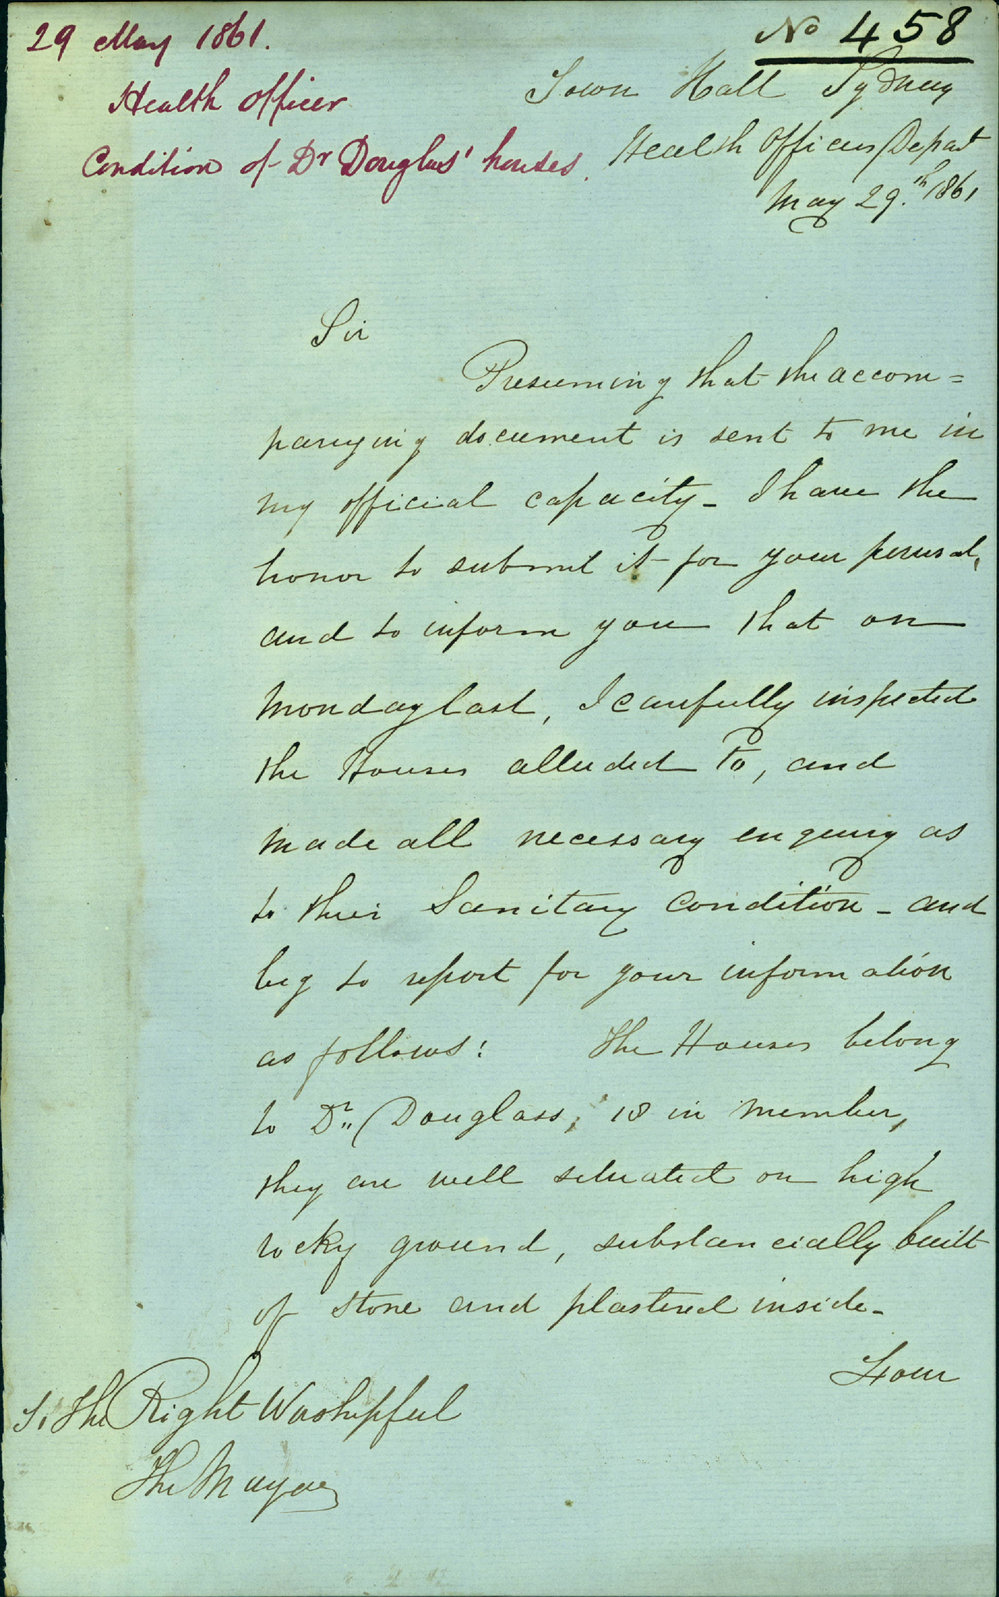 29 May 1861.
Health Officer
Condition of Dr Douglass' houses.
No 458
Town Hall Sydney
Health Officers Depart
May 29.th 1861
Sir
Presuming that the accom=
panying document is sent to me in
my official capacity - I have the
honor to submit it for your perusal,
and to inform you that on
Monday last, I carefully inspected
the Houses alluded to, and
made all necessary enquiry as
to their Sanitary Condition - and
beg to report for your information
as follows: The Houses belong
to Dr. Douglass, 18 in number,
they are well situated on high
rocky ground, substancially built
of stone and plastered inside -
Four
To The Right Worshipful
The Mayor